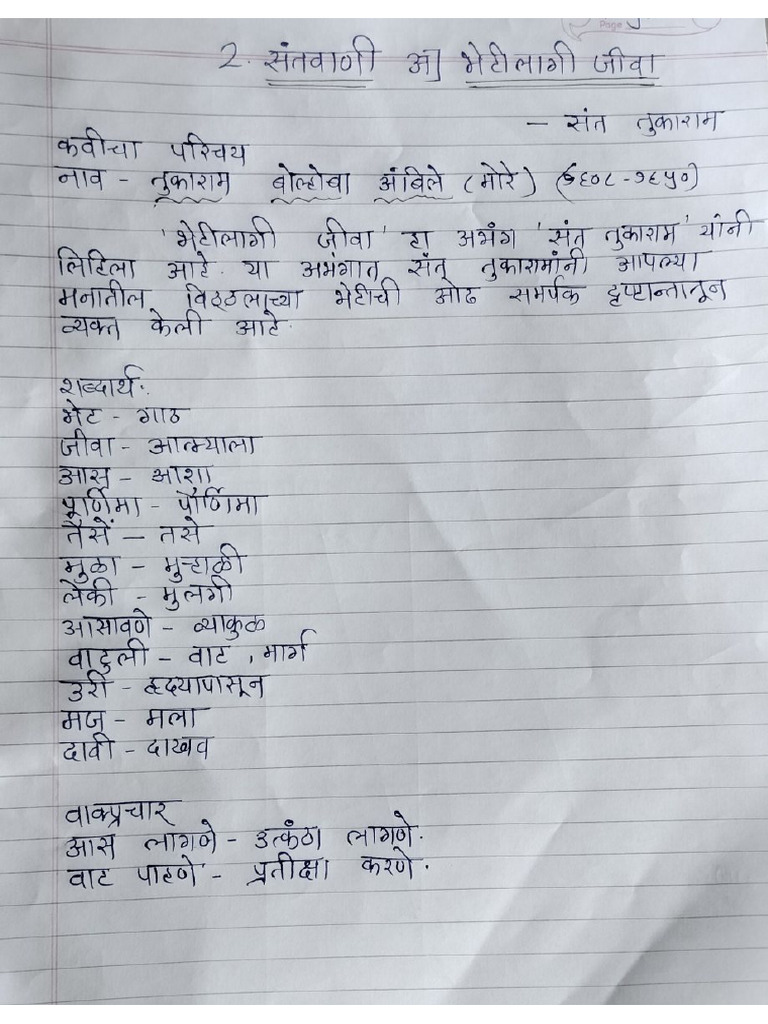 2. संतवाणी अ] भेटीलागी जीवा
- संत तुकाराम
कवीचा परिचय
नाव - तुकाराम बोल्होबा आंबिले (मोरे) (१६०८-१६५०)
'भेटीलागी जीवा' हा अभंग 'संत तुकाराम' यांनी
लिहिला आहे. या अभंगात संत तुकारामांनी आपल्या
मनातील विठ्ठलाच्या भेटीची ओढ समर्पक दृष्टान्तातून
व्यक्त केली आहे.
शब्दार्थ:
भेट - गाठ
जीवा - आत्म्याला
आस - आशा
पूर्णिमा - पौर्णिमा
तैसें - तसे
मुळा - मुऱ्हाळी
लेकी - मुलगी
आसावणे - व्याकुळ
वाटुली - वाट, मार्ग
उरी - हृदयापासून
मज - मला
दावी - दाखव
वाक्प्रचार
आस लागणे - उत्कंठा लागणे.
वाट पाहणे - प्रतीक्षा करणे.